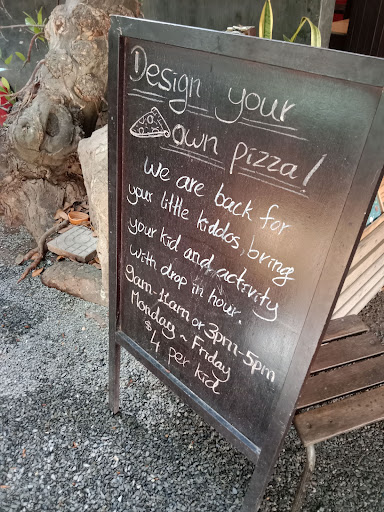 Design your
own pizza!
We are back for
your little kiddos, bring
your kid and activity
with drop in hour.
9am-11am or 3pm-5pm
Monday - Friday
$4 per kid